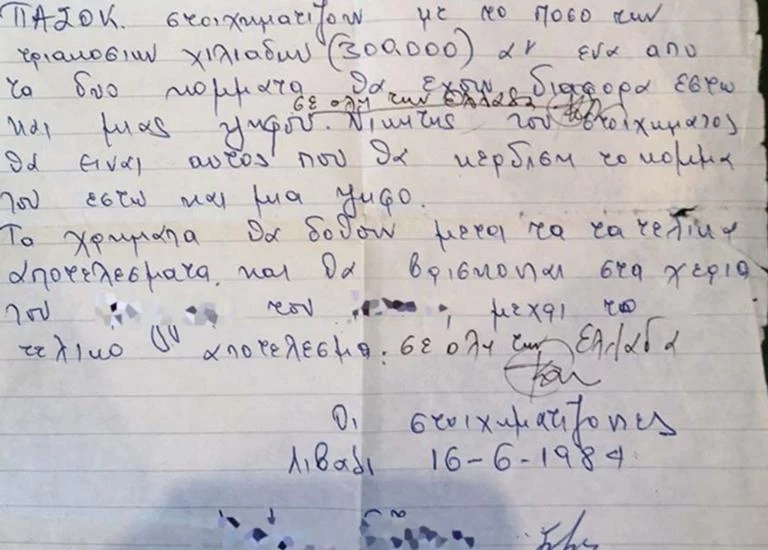 ΠΑΣΟΚ. στοιχηματιζουν με το ποσο των
τριακοσιων χιλιαδων (300.000) αν ενα απο
τα δυο κομματα θα εχουν διαφορα εστω
σε ολη την Ελλαδα
και μιας ψηφου. Νικητης του στοιχηματος
θα ειναι αυτος που θα κερδισει το κομμα
του εστω και μια ψηφο.
Τα χρηματα θα δοθουν μετα τα τα τελικα
αποτελεσματα. και θα βρισκονται στα χερια
του του μεχρι το
τελικο αποτελεσμα. σε όλη την Ελλαδα
Οι στοιχηματιζοντες
Λιβαδι 16-6-1984